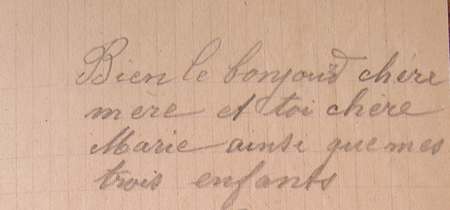 Bien le bonjour chère
mère et toi chère
Marie ainsi que mes
trois enfants